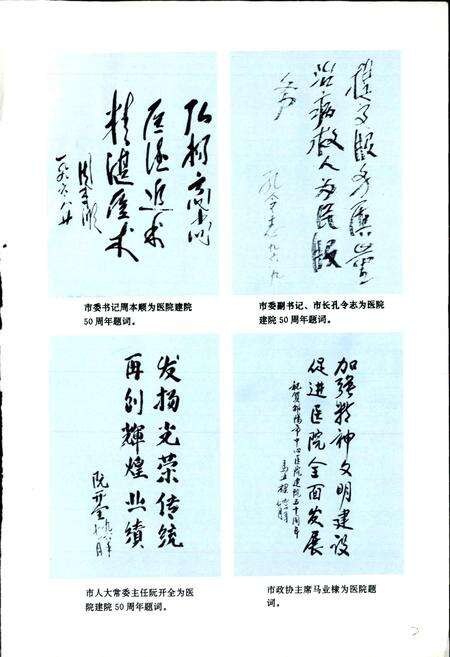 弘扬高尚
医德近术
精湛医术
周本顺
市委书记周本顺为医院建院
50周年题词。
治病救人为民服
市委副书记、市长孔令志为医院
建院50周年题词。
发扬光荣传统
再创辉煌业绩
阮开全
市人大常委主任阮开全为医
院建院50周年题词。
加强精神文明建设
促进医院全面发展
祝贺邵阳市中心医院建院五十周年
马业棣
市政协主席马业棣为医院题
词。